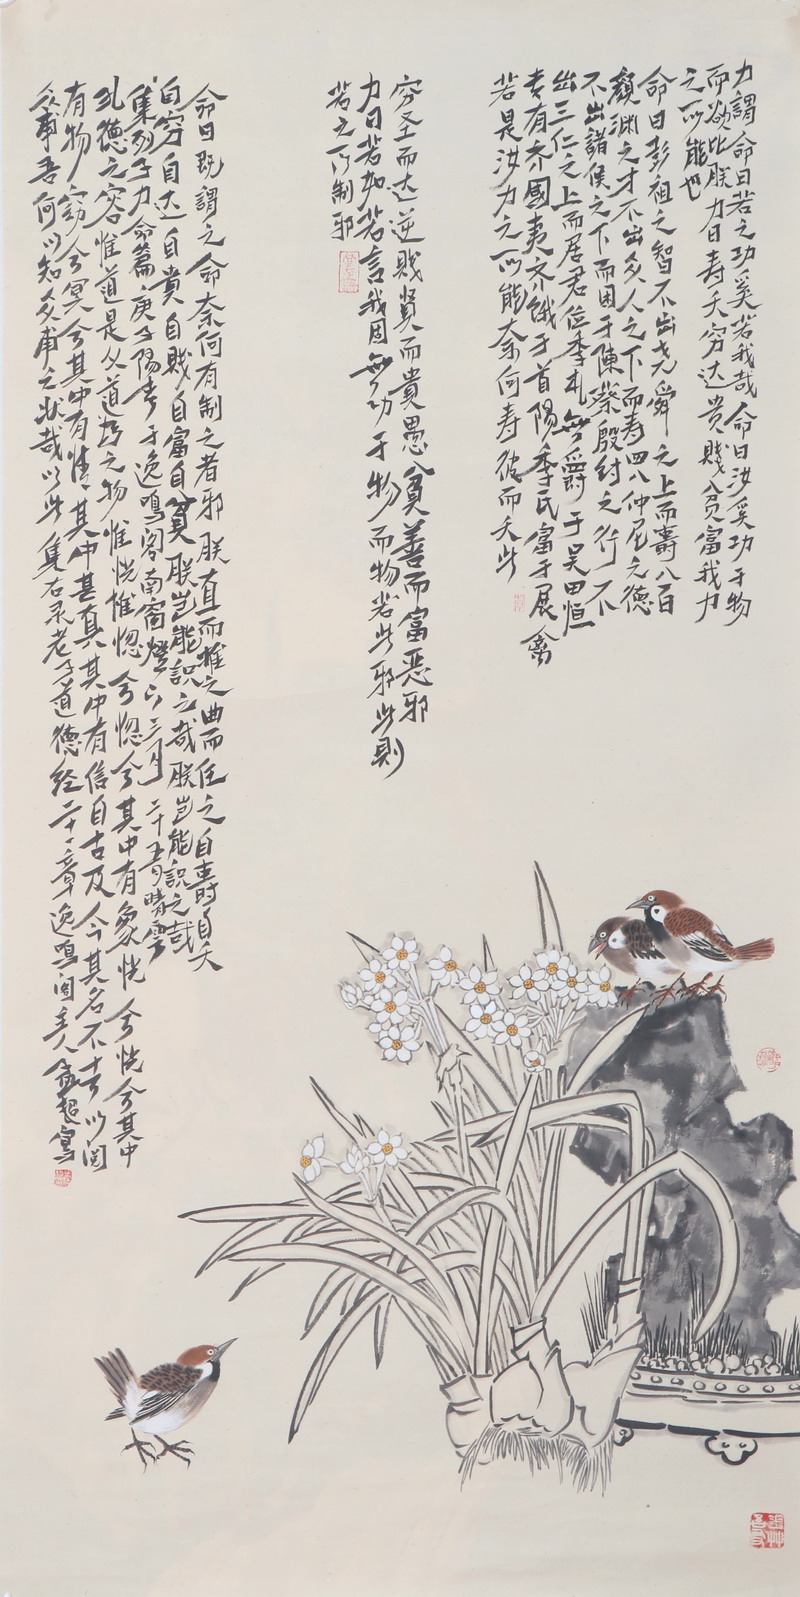 力謂命曰若之功奚若我哉命曰汝奚功于物
而欲比朕力曰寿夭穷达贵賤貧富我力
之所能也
命曰彭祖之智不出尧舜之上而壽八百
顏渊之才不出众人之下而寿四八仲尼之德
不出諸侯之下而困于陳蔡殷紂之行不
出三仁之上而居君位季札無爵于吴田恒
专有齐國夷齐餓于首陽季氏富于展禽
若是汝力之所能奈何寿彼而夭此
穷圣而达逆賤賢而貴愚貧善而富惡邪
力曰若如若言我固無功于物而物若此邪此則
若之所制邪
命曰既謂之命奈何有制之者邪朕直而推之曲而任之自壽自夭
自穷自达自貴自賤自富自貧朕岂能識之哉朕岂能識之哉
集列子力命篇庚子陽春于逸鳴阁南窗燈下三月二十
孔德之容惟道是从道為之物惟恍惟惚兮惚兮其中有象恍兮恍兮其中
有物窈兮冥兮其中有情其中甚真其中有信自古及今其名不去以阅
众甫吾何以知众甫之状哉以此集右录老子道德经二十一章逸鳴阁主人孟超寫